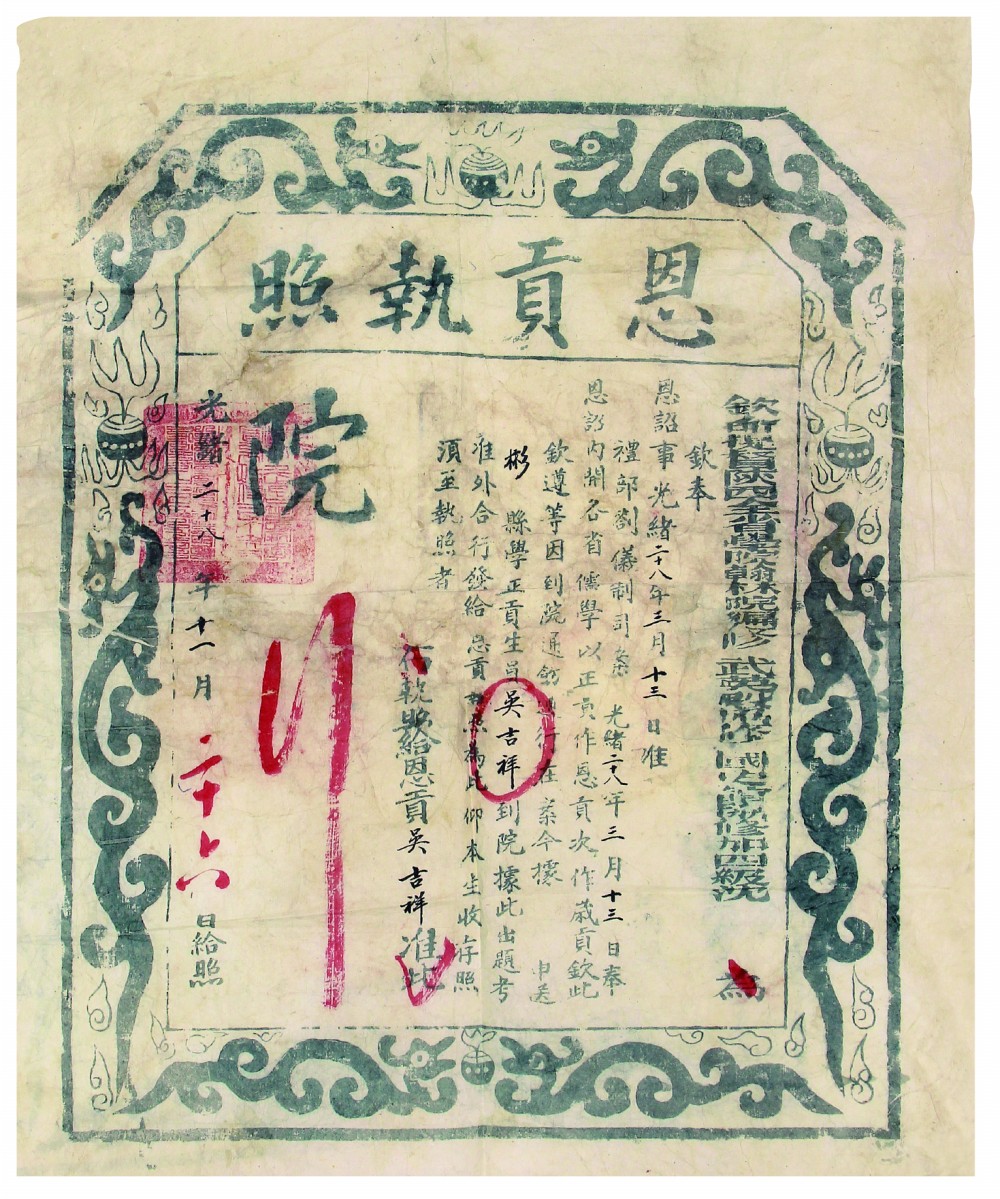 恩貢執照
欽命提督陝西全省學院翰林院編修武英殿協修國史館協修加四級沈為
欽奉
恩詔事光緒二十八年三月十三日准
禮部劄儀制司案光緒二十八年三月十三日奉
恩詔內開各省儒學以正貢作恩貢次作歲貢欽此
欽遵等因到院通飭遵行在案今據
彬縣學正貢生員吳吉祥到院據此出題考
申送
准外合行發給恩貢執照為此仰本生收存照
須至執照者
右執照給恩貢吳吉祥准此
院
光緒二十八年十一月二十六日給照
行